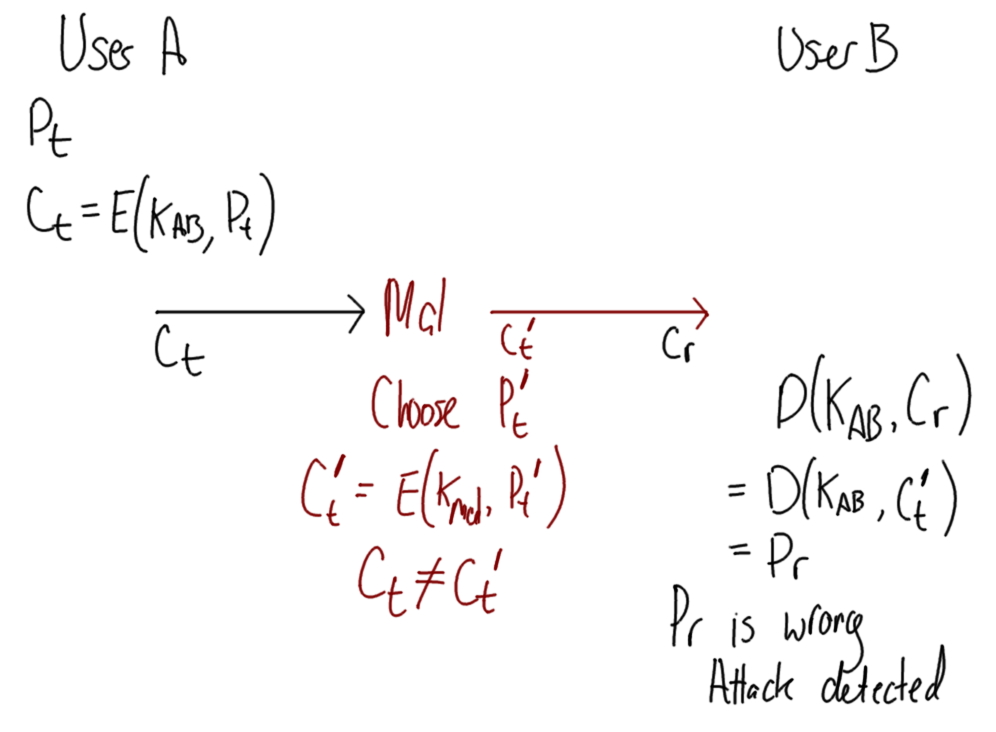 User A
User B
Pt
Ct = E(KAB, Pt)
Ct
Mal
Ct'
Cr
Choose Pt'
Ct' = E(Kmal, Pt')
Ct ≠ Ct'
D(KAB, Cr)
= D(KAB, Ct')
= Pr
Pr is wrong
Attack detected